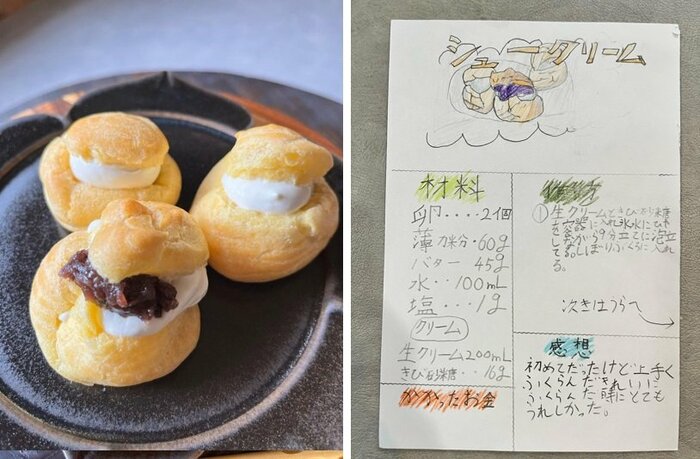 シュークリーム
材料
卵････2個
薄力粉･60g
バター 45g
水･･100mL
塩･･･1g
クリーム
生クリーム200mL
きび砂糖･･16g
かかったお金
作り方
①生クリームときび砂糖
を
次きはうらへ
感想
初めてだったけど上手く
ふくらんだきれいに
ふくらんだ時にとても
うれしかった。